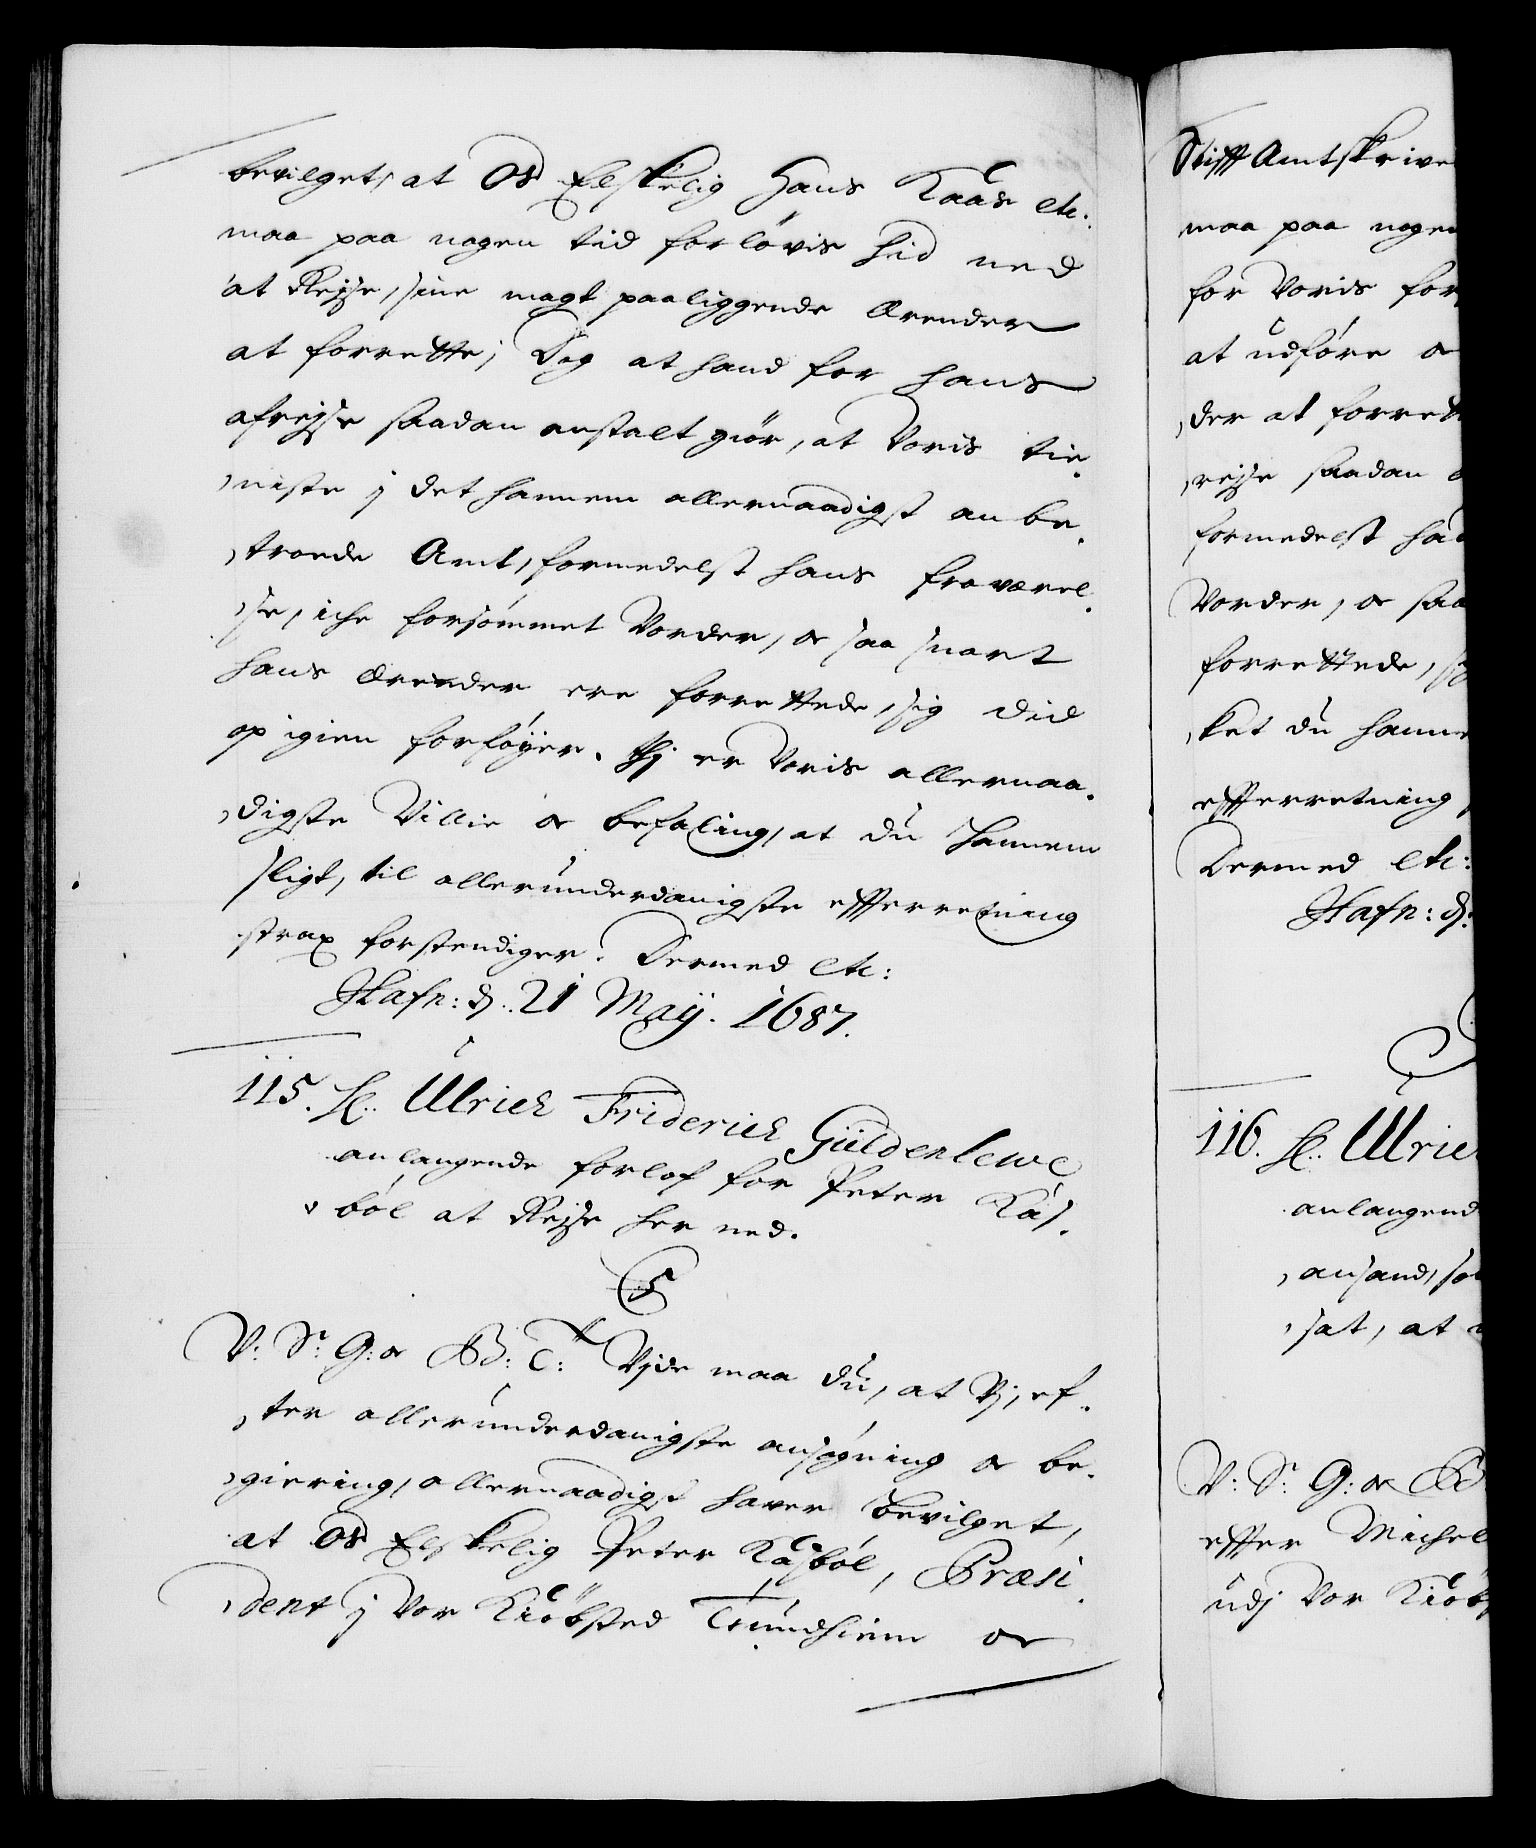 bevilget, at Os Elskelig Hans Kaas etc:
maa paa nogen tid forlöves hid ned
at Rejse, sine magt paaliggende Ærender
at forrette; Dog at hand for hans
afrejse saadan anstalt giör, at Voris tie-
niste j det hannem allernaadigst anbe-
troede Amt, formedelst hans fraværel-
se, iche forsömmet Vorder, oc saa snart
hans Ærender ere forrettede, sig did
op igien forföyer. Thj er Voris allernaa-
digste Villie oc befaling, at du hannem
sligt, til allerunderdanigste efterretning
strax forstendiger. Dermed etc:
Hafn: d. 21 Maij. 1687.
115. H: Ulrich Friderich Güldenlewe
anlangende forlof for Peter Kås-
böl at Rejse her ned.
C5
V: Sr: G: oc B: T: Vide maa du, at Vj, ef-
ter allerunderdanigste ansögning oc be-
giering, allernaadigst haver bevilget,
at Os Elskelig Peter Kåsböl, Præsi-
dent j Vor Kiöbsted Trundhiem oc
Stifft Amtskrive
maa paa nogen
for Voris for
at udföre oc
der at forrett
rejse saadan
formedelst han
Vorder, oc saa
forrettede, sig
ket du hanne
efterretning
Dermed etc:
Hafn: d:
116. H: Ulric
anlangend
ansand, so
sat, at
V: Sr: G: oc B
effter Michel
udj Vor Kiöb